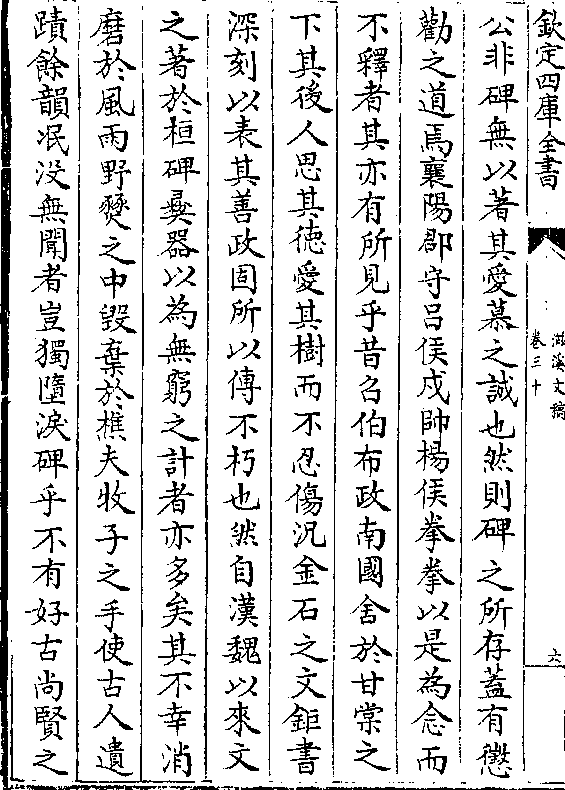 欽定四庫全書
滋溪文稿
卷三十
六
公非碑無以著其愛慕之誠也然則碑之所存蓋有懲
勸之道焉襄陽郡守呂侯戍帥楊侯拳拳以是為念而
不釋者其亦有所見乎昔召伯布政南國舍於甘棠之
下其後人思其徳愛其樹而不忍傷況金石之文鉅書
深刻以表其善政固所以傳不朽也然自漢魏以來文
之著於桓碑彛器以為無窮之計者亦多矣其不幸消
磨於風雨野燹之中毀棄於樵夫牧子之手使古人遺
蹟餘韻泯没無聞者豈獨墮淚碑乎不有好古尚賢之